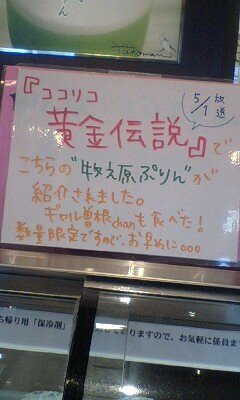 りん
Takoman
『ココリコ
黄金伝説』で
5/1 放送
こちらの"牧之原ぷりん"が
紹介されました。
ギャル曽根chanも食べた！
数量限定ですので、お早めに。。。
ち帰り用「保冷剤」
しておりますので、お気軽に係員ま